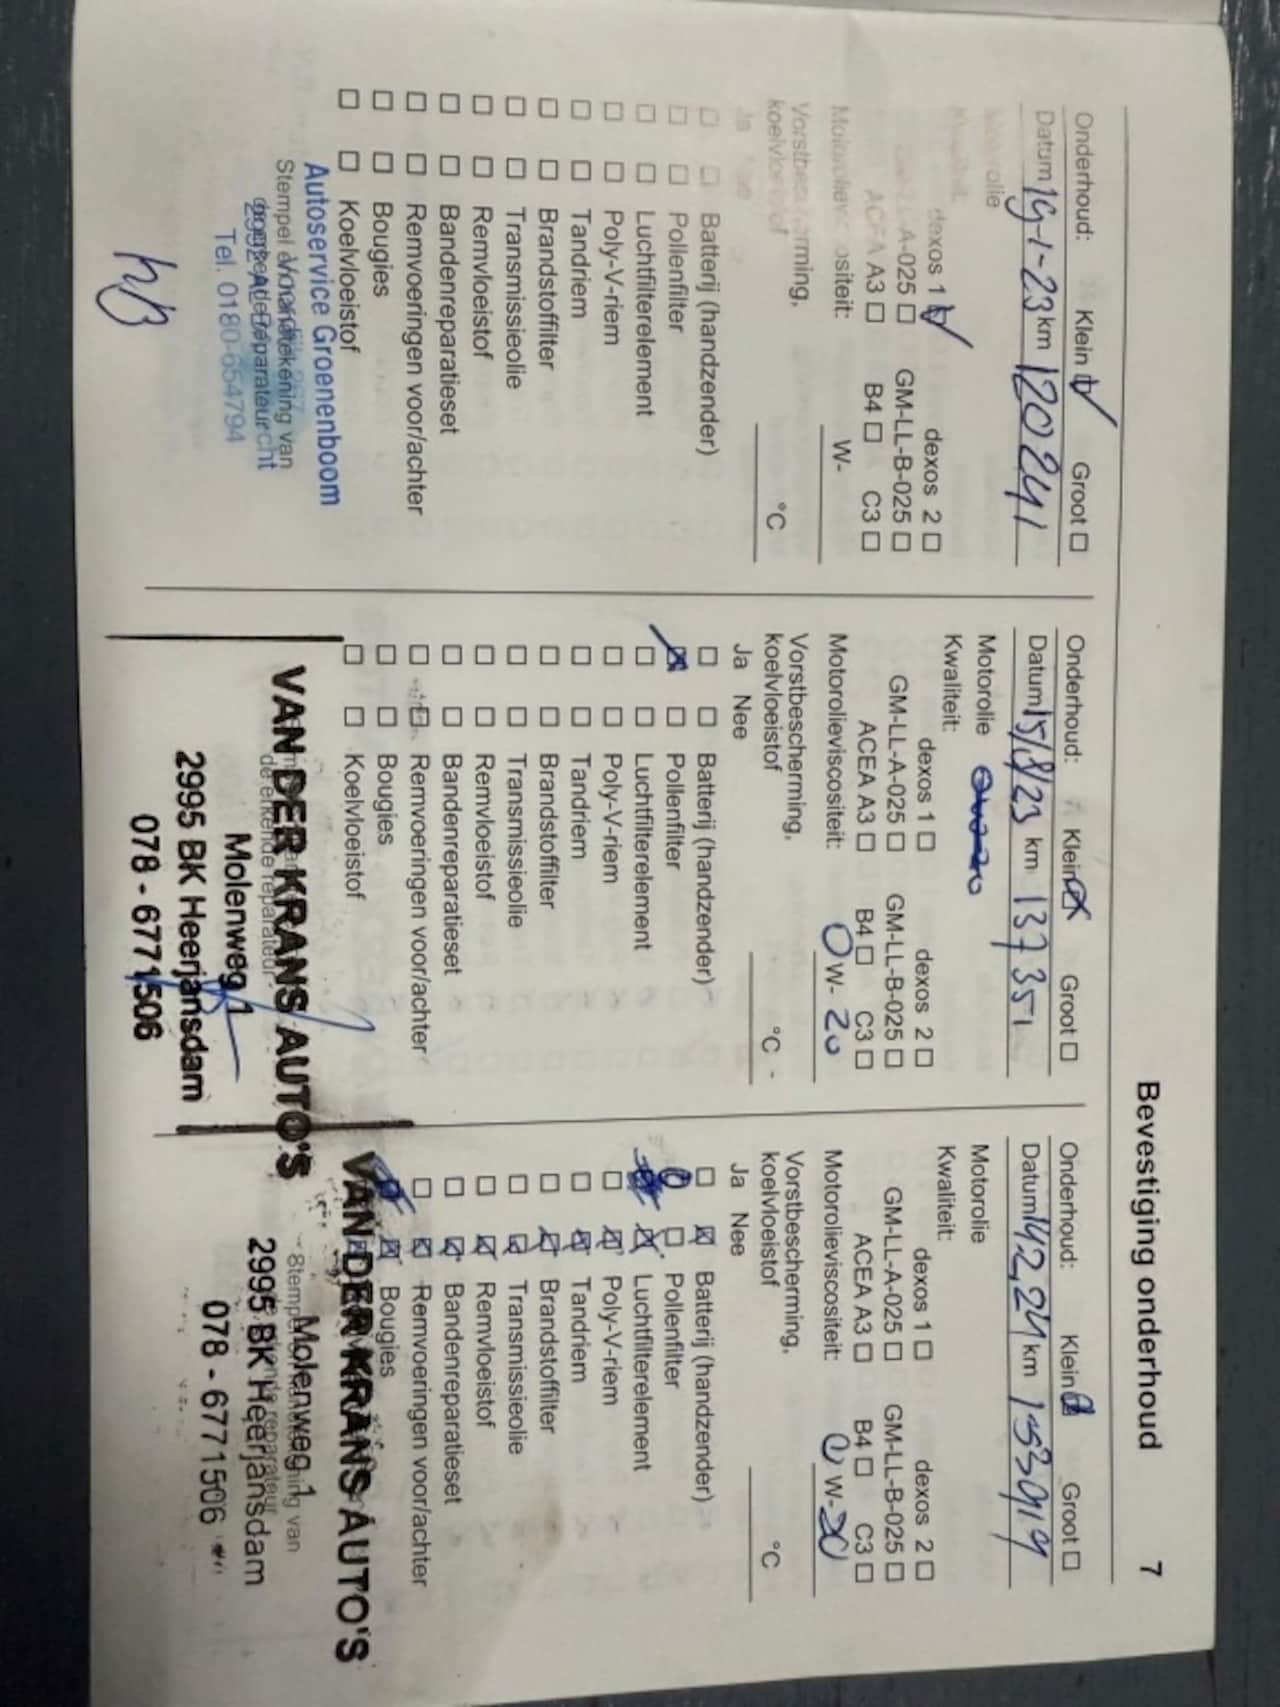 Bevestiging onderhoud 7
Onderhoud: Klein Groot
Datum 19-1-23 km 120241
Motorolie
dexos 1 dexos 2
A-025 GM-LL-B-025
ACEA A3 B4 C3
Motorolieviscositeit: W-
Vorstbescherming,
koelvloeistof °C
Ja Nee
Batterij (handzender)
Pollenfilter
Luchtfilterelement
Poly-V-riem
Tandriem
Brandstoffilter
Transmissieolie
Remvloeistof
Bandenreparatieset
Remvoeringen voor/achter
Bougies
Koelvloeistof
Autoservice Groenenboom
Stempel en handtekening van
de erkende reparateur
Tel. 0180-654794
Onderhoud: Klein Groot
Datum 15/8/23 km 137351
Motorolie
Kwaliteit:
dexos 1 dexos 2
GM-LL-A-025 GM-LL-B-025
ACEA A3 B4 C3
Motorolieviscositeit: 0 W- 20
Vorstbescherming,
koelvloeistof °C -
Ja Nee
Batterij (handzender)
Pollenfilter
Luchtfilterelement
Poly-V-riem
Tandriem
Brandstoffilter
Transmissieolie
Remvloeistof
Bandenreparatieset
Remvoeringen voor/achter
Bougies
Koelvloeistof
VAN DER KRANS AUTO'S
de erkende reparateur
Molenweg 1
2995 BK Heerjansdam
078 - 6771506
Onderhoud: Klein Groot
Datum 14.2.24 km 153919
Motorolie
Kwaliteit:
dexos 1 dexos 2
GM-LL-A-025 GM-LL-B-025
ACEA A3 B4 C3
Motorolieviscositeit: 0 W- 20
Vorstbescherming,
koelvloeistof °C
Ja Nee
Batterij (handzender)
Pollenfilter
Luchtfilterelement
Poly-V-riem
Tandriem
Brandstoffilter
Transmissieolie
Remvloeistof
Bandenreparatieset
Remvoeringen voor/achter
Bougies
VAN DER KRANS AUTO'S
Stempel en handtekening van
Molenweg 1
reparateur
2995 BK Heerjansdam
078 - 6771506